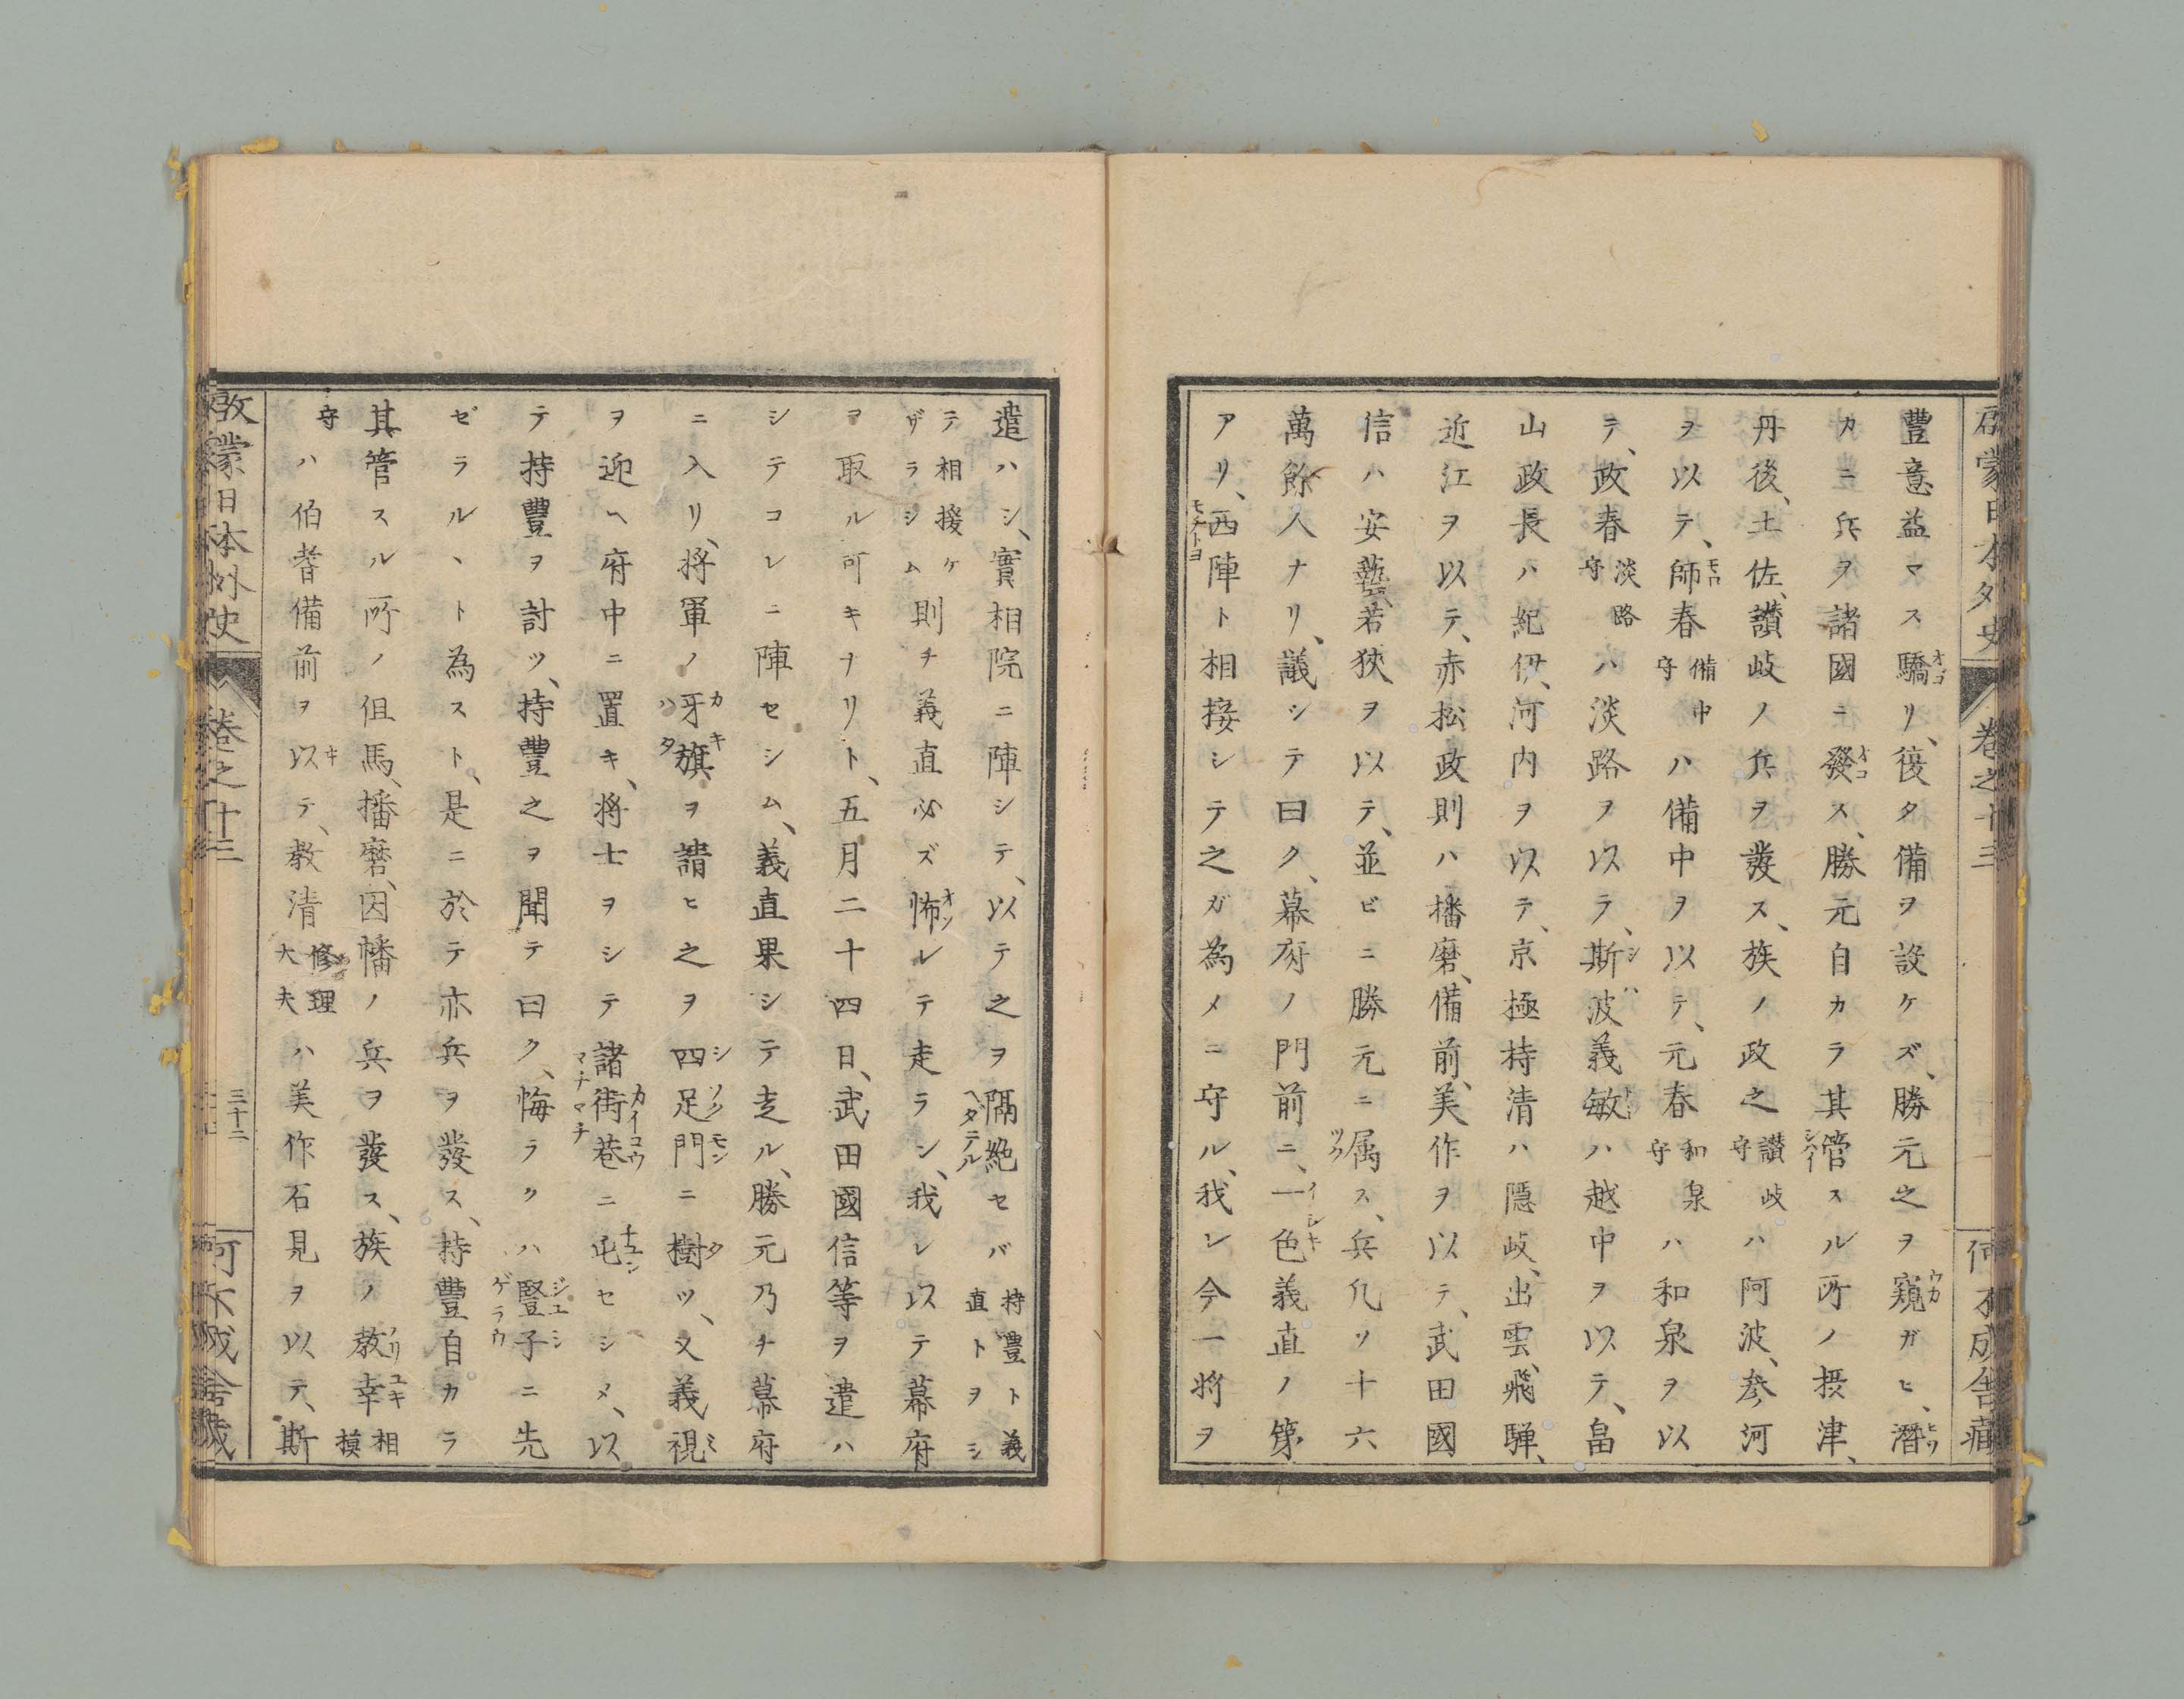 啓蒙日本外史 卷之十三 何不成舎藏
豐意益マス驕リ、復タ備ヲ設ケズ、勝元之ヲ窺ガヒ、潛
カニ兵ヲ諸國ニ發ス、勝元自カラ其管スル所ノ摂津、
丹後、土佐、讃岐ノ兵ヲ發ス、族ノ政之讃岐守ハ阿波、參河
ヲ以テ、師春備中守ハ備中ヲ以テ、元春和泉守ハ和泉ヲ以
テ、政春淡路守ハ淡路ヲ以テ、斯波義敏ハ越中ヲ以テ、畠
山政長ハ紀伊、河内ヲ以テ、京極持清ハ隱岐、出雲、飛騨、
近江ヲ以テ、赤松政則ハ播磨、備前、美作ヲ以テ、武田國
信ハ安藝、若狹ヲ以テ、並ビニ勝元ニ属ス、兵凡ソ十六
萬餘人ナリ、議シテ曰ク、幕府ノ門前ニ、一色義直ノ第
アリ、西陣ト相接シテ之ガ為メニ守ル、我レ今一將ヲ
遣ハシ、實相院ニ陣シテ、以テ之ヲ隔絶セバ持豐ト義直トヲシ
テ相援ケザラシム則チ義直必ズ怖レテ走ラン、我レ以テ幕府
ヲ取ル可キナリト、五月二十四日、武田國信等ヲ遣ハ
シテコレニ陣セシム、義直果シテ走ル、勝元乃チ幕府
ニ入リ、將軍ノ牙旗ヲ請ヒ之ヲ四足門ニ樹ツ、又義視
ヲ迎ヘ府中ニ置キ、將士ヲシテ諸街巷ニ屯セシメ、以
テ持豐ヲ討ツ、持豐之ヲ聞テ曰ク、悔ラクハ豎子ニ先
ゼラル、ト為スト、是ニ於テ亦兵ヲ發ス、持豐自カラ
其管スル所ノ但馬、播磨、因幡ノ兵ヲ發ス、族ノ教幸相模
守ハ伯耆備前ヲ以テ、教清修理大夫ハ美作石見ヲ以テ、斯
啓蒙日本外史 卷之十三 三十二 何不成舎藏